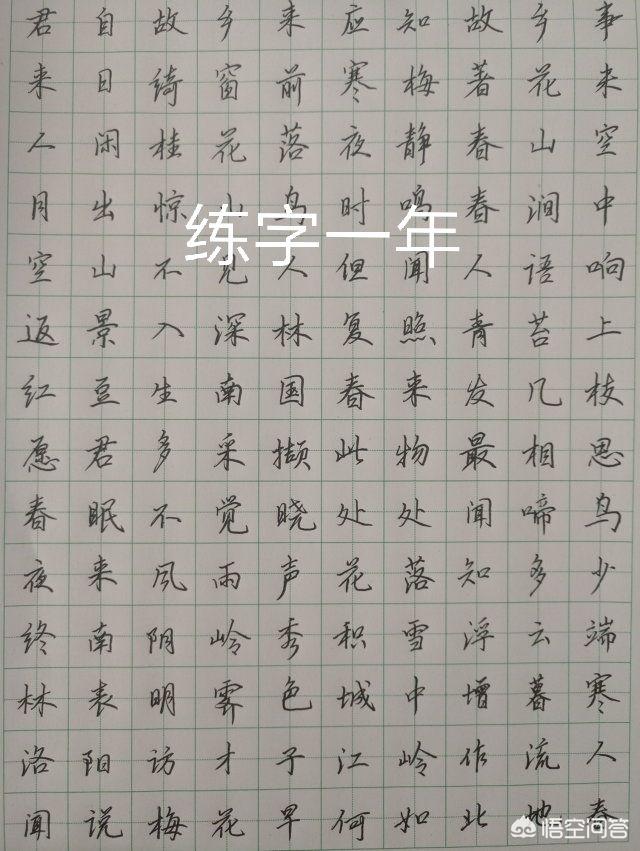 君自故乡来应知故乡事
来日绮窗前寒梅著花来
人闲桂花落夜静春山空
月出惊山鸟时鸣春涧中
练字一年
空山不见人但闻人语响
返景入深林复照青苔上
红豆生南国春来发几枝
愿君多采撷此物最相思
春眠不觉晓处处闻啼鸟
夜来风雨声花落知多少
终南阴岭秀积雪浮云端
林表明霁色城中增暮寒
洛阳访才子江岭作流人
闻说梅花早何如北地春
悟空问答